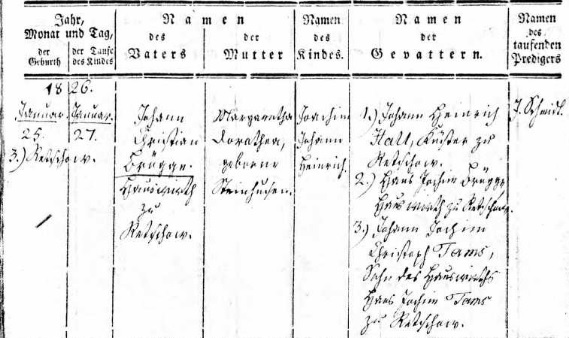 Jahr,
Monat und Tag,
der
Geburth
der Taufe
des Kindes
Namen
des
Vaters
Namen
der
Mutter
Namen
des
Kindes.
Namen
der
Gevattern.
Namen
des
taufenden
Predigers
1826.
Januar
25.
3.) Retschow.
Januar
27.
Johann
Christian
Brügge.
Hauswirth
zu
Retschow.
Margaretha
Dorothea,
geborne
Joachim
Johann
Heinrich.
1.) Johann Heinrich
Hall, Küster zu
Retschow.
2.) Hans Jochim Brügge,
Hauswirth zu Retschow.
3.) Johann Joch im
Christoph Tams,
Sohn des Hauswirths
Hans Jochim Tams
zu Retschow.
J. Schmidt.